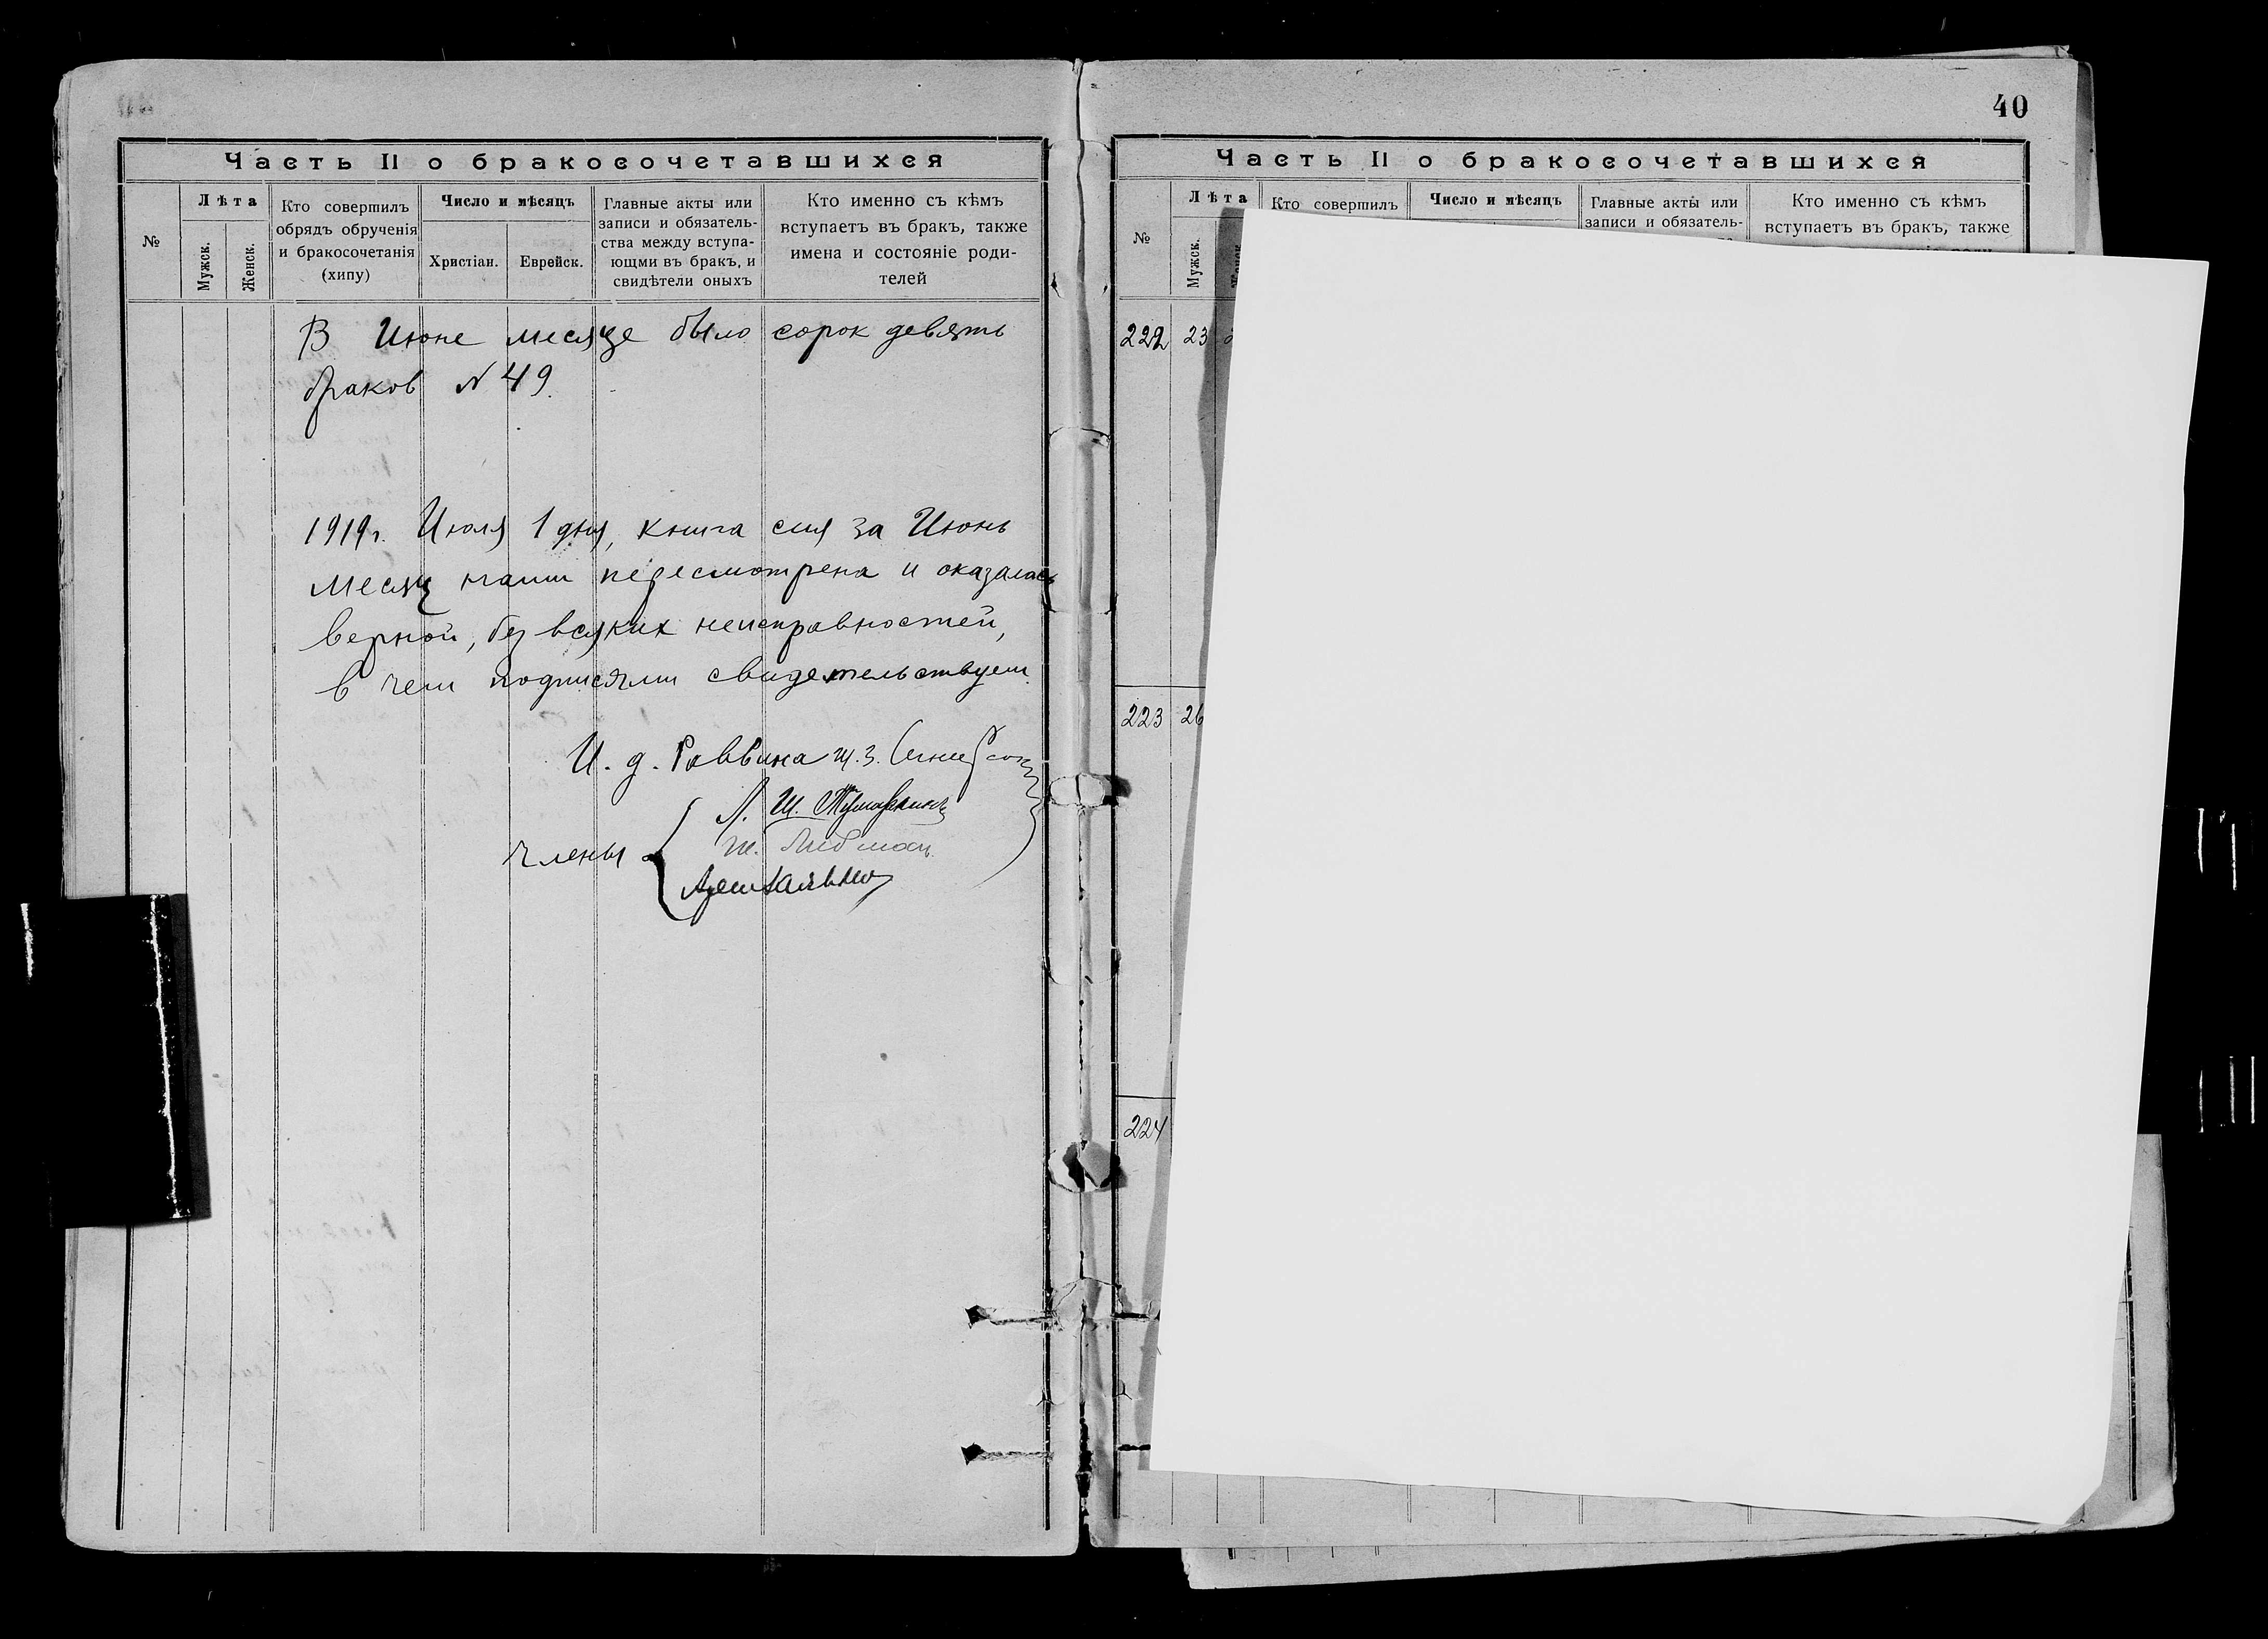 Часть II о бракосочетавшихся
№
Лѣта
Мужск.
Женск.
Кто совершилъ
обрядъ обрученія
и бракосочетанія
(хипу)
Число и мѣсяцъ
Христіан.
Еврейск.
Главные акты или
записи и обязатель-
ства между вступа-
ющми въ бракъ, и
свидѣтели оныхъ
Кто именно съ кѣмъ
вступаетъ въ бракъ, также
имена и состояніе роди-
телей
В Июне месяце было сорок девять
браков N 49.
1919 г. Июля 1 дня, книга сия за Июнь
месяц нами пересмотрена и оказалась
верной, без всяких неисправностей,
в чем подписями свидетельствуем.
И. д. Раввина
Члены
Л. Ш.
40
Часть II о бракосочетавшихся
№
Лѣта
Мужск.
Кто совершилъ
Число и мѣсяцъ
Главные акты или
записи и обязатель-
Кто именно съ кѣмъ
вступаетъ въ бракъ, также
222 23
223 26
224